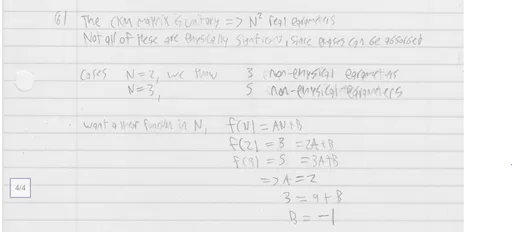 6) The CKM matrix is unitary => N² real parameters
Not all of these are physically significant, since phases can be absorbed
Cases N=2, we have 3 non-physical parameters
N=3, 5 non-physical parameters
want a linear function in N, f(N) = AN+B
f(2) = 3 = 2A+B
f(3) = 5 = 3A+B
=> A = 2
3 = 4 + B
B = -1
4/4